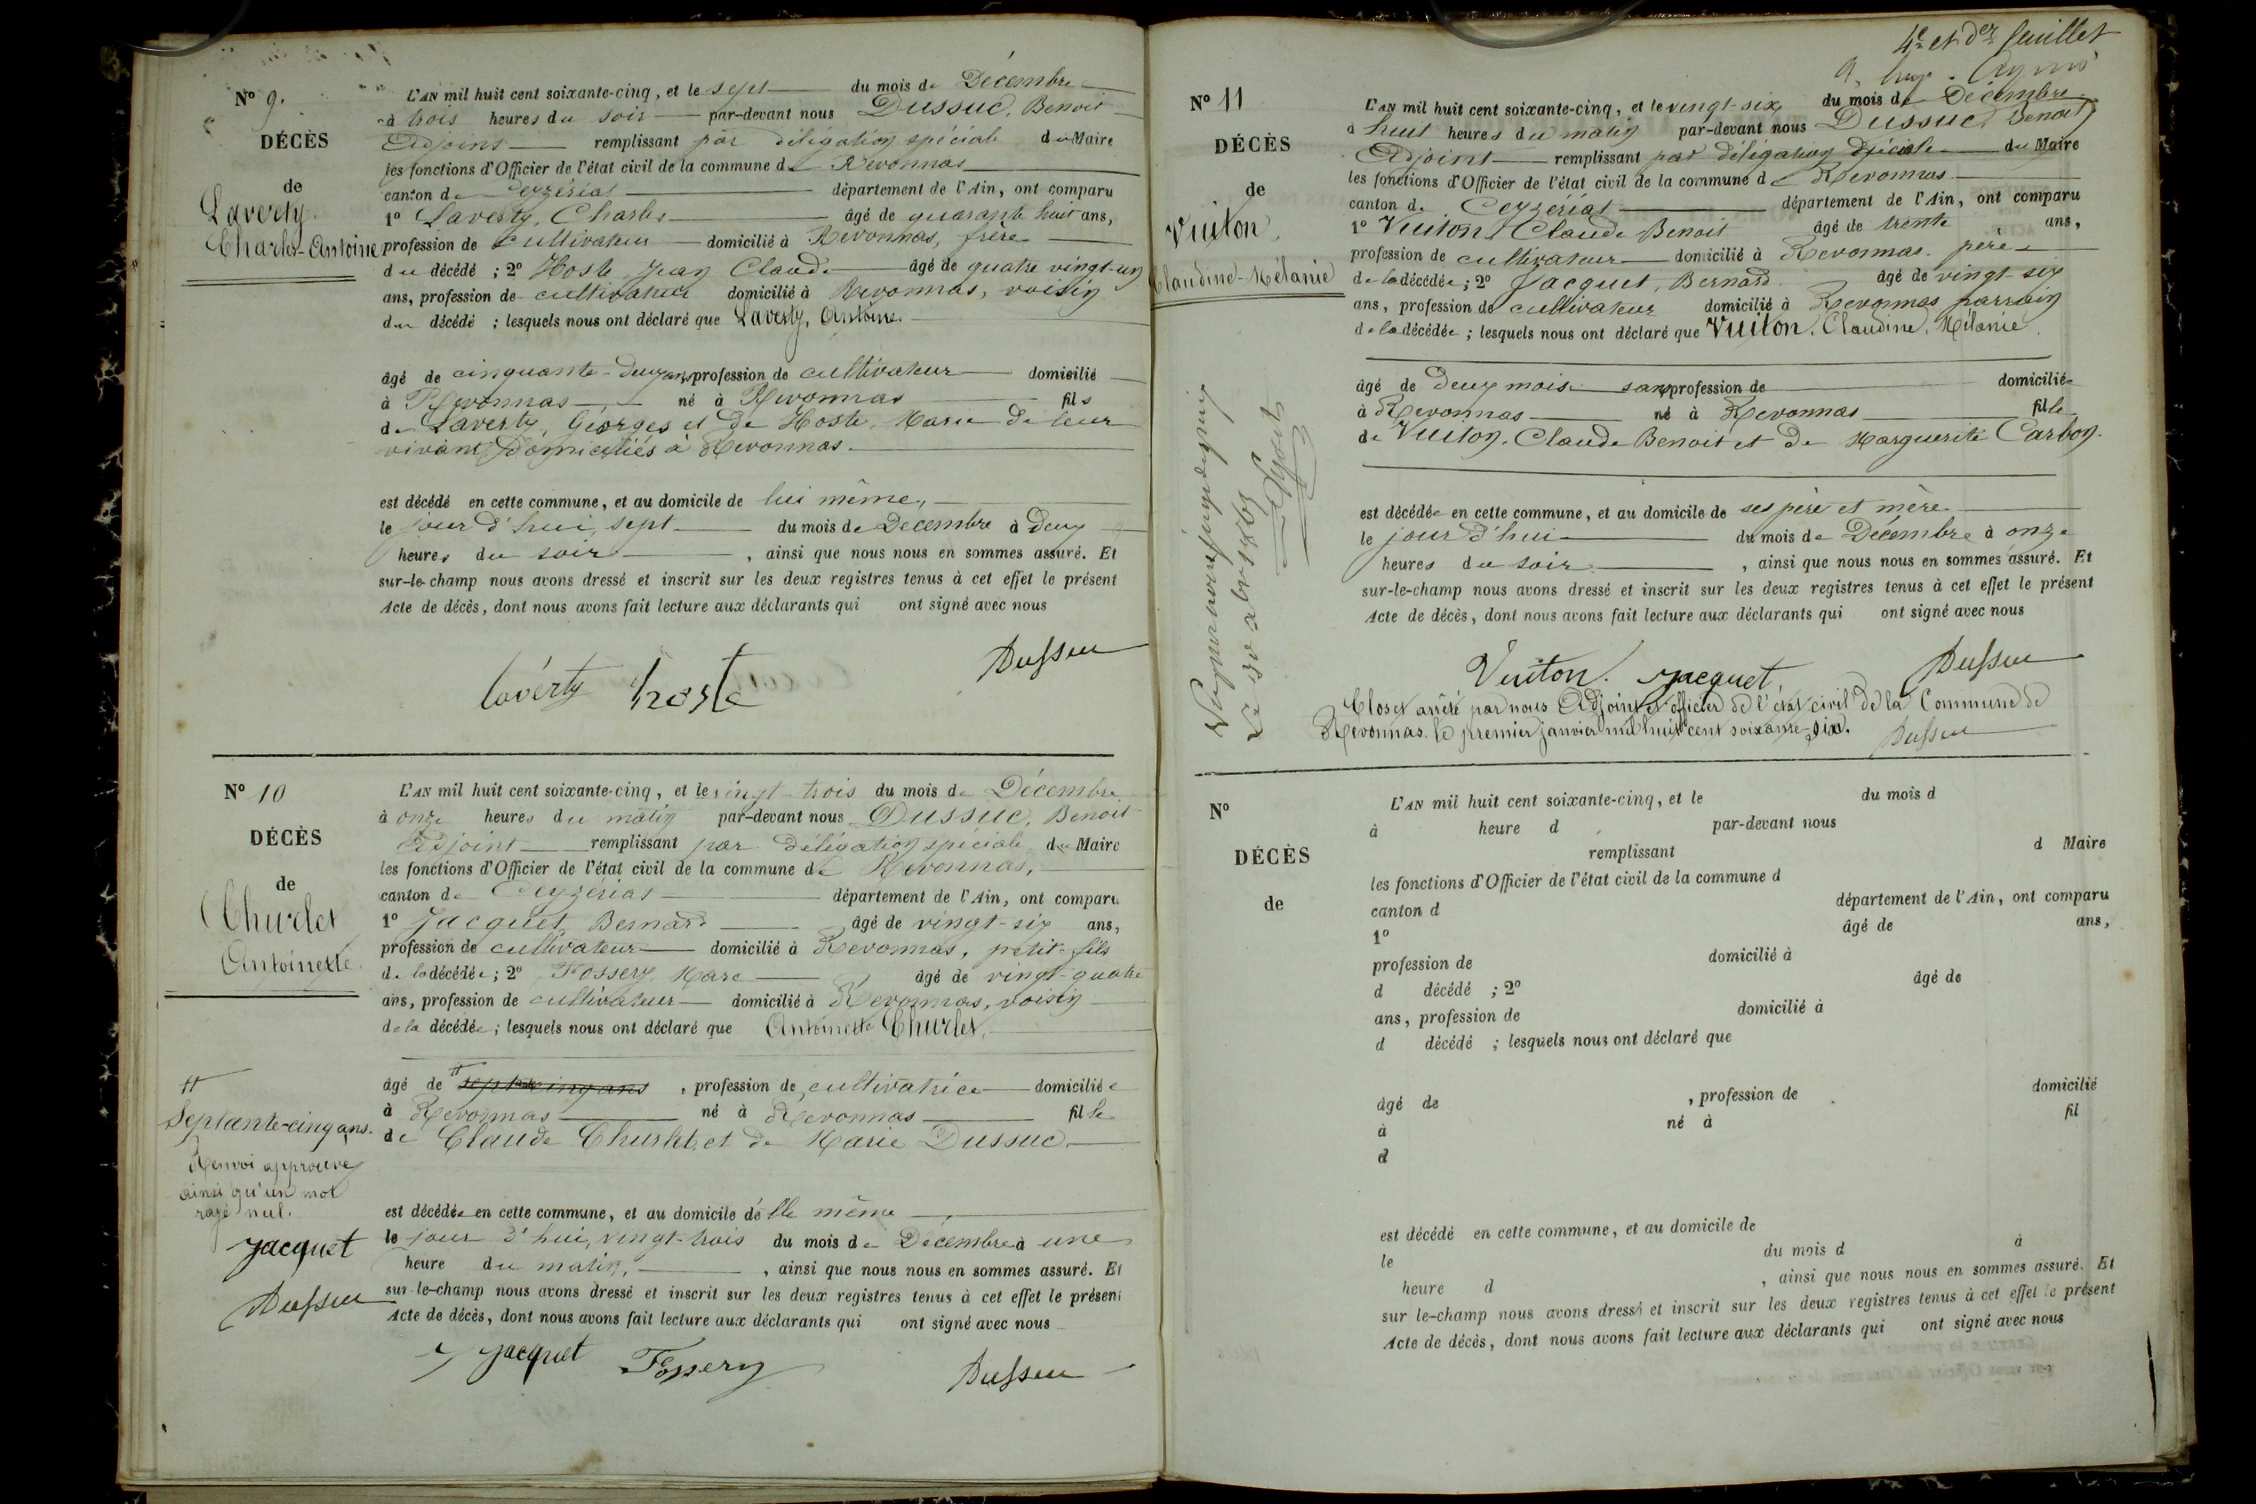 Nº 9.
DÉCÈS
de
Laverty
Charles-Antoine
L'AN mil huit cent soixante-cinq, et le sept du mois de Décembre
à trois heures du soir par-devant nous Dussuc, Benoit
Adjoint remplissant par délégation spéciale du Maire
les fonctions d'Officier de l'état civil de la commune de Revonnas
canton de Ceyzériat département de l'Ain, ont comparu
1º Laverty, Charles âgé de quarante huit ans,
profession de cultivateur domicilié à Revonnas, frère
du décédé ; 2º Hoste Jean Claude âgé de quatre vingt-un
ans, profession de cultivateur domicilié à Revonnas, voisin
du décédé ; lesquels nous ont déclaré que Laverty, Antoine.
âgé de cinquante-deux ans, profession de cultivateur domicilié
à Revonnas né à Revonnas fils
de Laverty, Georges et de Hoste, Marie de leur
vivant Domiciliés à Revonnas.
est décédé en cette commune, et au domicile de lui même,
le jour d'hui, sept du mois de Décembre à deux
heures du soir , ainsi que nous nous en sommes assuré. Et
sur-le-champ nous avons dressé et inscrit sur les deux registres tenus à cet effet le présent
Acte de décès, dont nous avons fait lecture aux déclarants qui ont signé avec nous
Laverty hoste Dussuc
Nº 10
DÉCÈS
de
Churlet
Antoinette
L'AN mil huit cent soixante-cinq, et le vingt-trois du mois de Décembre
à onze heures du matin par-devant nous Dussuc, Benoit
Adjoint remplissant par délégation spéciale du Maire
les fonctions d'Officier de l'état civil de la commune de Revonnas,
canton de Ceyzériat département de l'Ain, ont comparu
1º Jacquet Bernard âgé de vingt-six ans,
profession de cultivateur domicilié à Revonnas, petit-fils
de la décédée ; 2º Fossery Marc âgé de vingt-quatre
ans, profession de cultivateur domicilié à Revonnas, voisin
de la décédée ; lesquels nous ont déclaré que Antoinette Churlet,
âgé de , profession de cultivatrice domiciliée
à Revonnas né à Revonnas fille
de Claude Churlet, et de Marie Dussuc
Septante-cinq ans.
Renvoi approuvé
ainsi qu'un mot
rayé nul.
Jacquet
Dussuc
est décédée en cette commune, et au domicile d'elle même
le jour d'hui, vingt-trois du mois de Décembre à une
heure du matin, , ainsi que nous nous en sommes assuré. Et
sur-le-champ nous avons dressé et inscrit sur les deux registres tenus à cet effet le présent
Acte de décès, dont nous avons fait lecture aux déclarants qui ont signé avec nous
Jacquet Fossery Dussuc
4e et der feuillet
Nº 11
DÉCÈS
de
Vuiton,
Claudine-Mélanie
L'AN mil huit cent soixante-cinq, et le vingt-six du mois de Décembre
à huit heures du matin par-devant nous Dussuc, Benoit
Adjoint remplissant par délégation spéciale du Maire
les fonctions d'Officier de l'état civil de la commune de Revonnas
canton de Ceyzériat département de l'Ain, ont comparu
1º Vuiton, Claude Benoit âgé de trente ans,
profession de cultivateur domicilié à Revonnas père
de la décédée ; 2º Jacquet, Bernard âgé de vingt-six
ans, profession de cultivateur domicilié à Revonnas parrain
de la décédée ; lesquels nous ont déclaré que Vuiton, Claudine, Mélanie.
âgé de deux mois sans profession de domiciliée
à Revonnas né à Revonnas fille
de Vuiton, Claude Benoit et de Marguerite Carbon.
est décédée en cette commune, et au domicile de ses père et mère
le jour d'hui du mois de Décembre à onze
heures du soir , ainsi que nous nous en sommes assuré. Et
sur-le-champ nous avons dressé et inscrit sur les deux registres tenus à cet effet le présent
Acte de décès, dont nous avons fait lecture aux déclarants qui ont signé avec nous
Vuiton. Jacquet Dussuc
Clos et arrêté par nous Adjoint et officier de l'état civil de la Commune de
Revonnas le premier janvier mil huit cent soixante-six. Dussuc
Nº
DÉCÈS
de
L'AN mil huit cent soixante-cinq, et le du mois d
à heure d par-devant nous
remplissant d Maire
les fonctions d'Officier de l'état civil de la commune d
canton d département de l'Ain, ont comparu
1º âgé de ans,
profession de domicilié à
d décédé ; 2º âgé de
ans, profession de domicilié à
d décédé ; lesquels nous ont déclaré que
âgé de , profession de domicilié
à né à fil
d
est décédé en cette commune, et au domicile de
le du mois d à
heure d , ainsi que nous nous en sommes assuré. Et
sur le-champ nous avons dressé et inscrit sur les deux registres tenus à cet effet le présent
Acte de décès, dont nous avons fait lecture aux déclarants qui ont signé avec nous